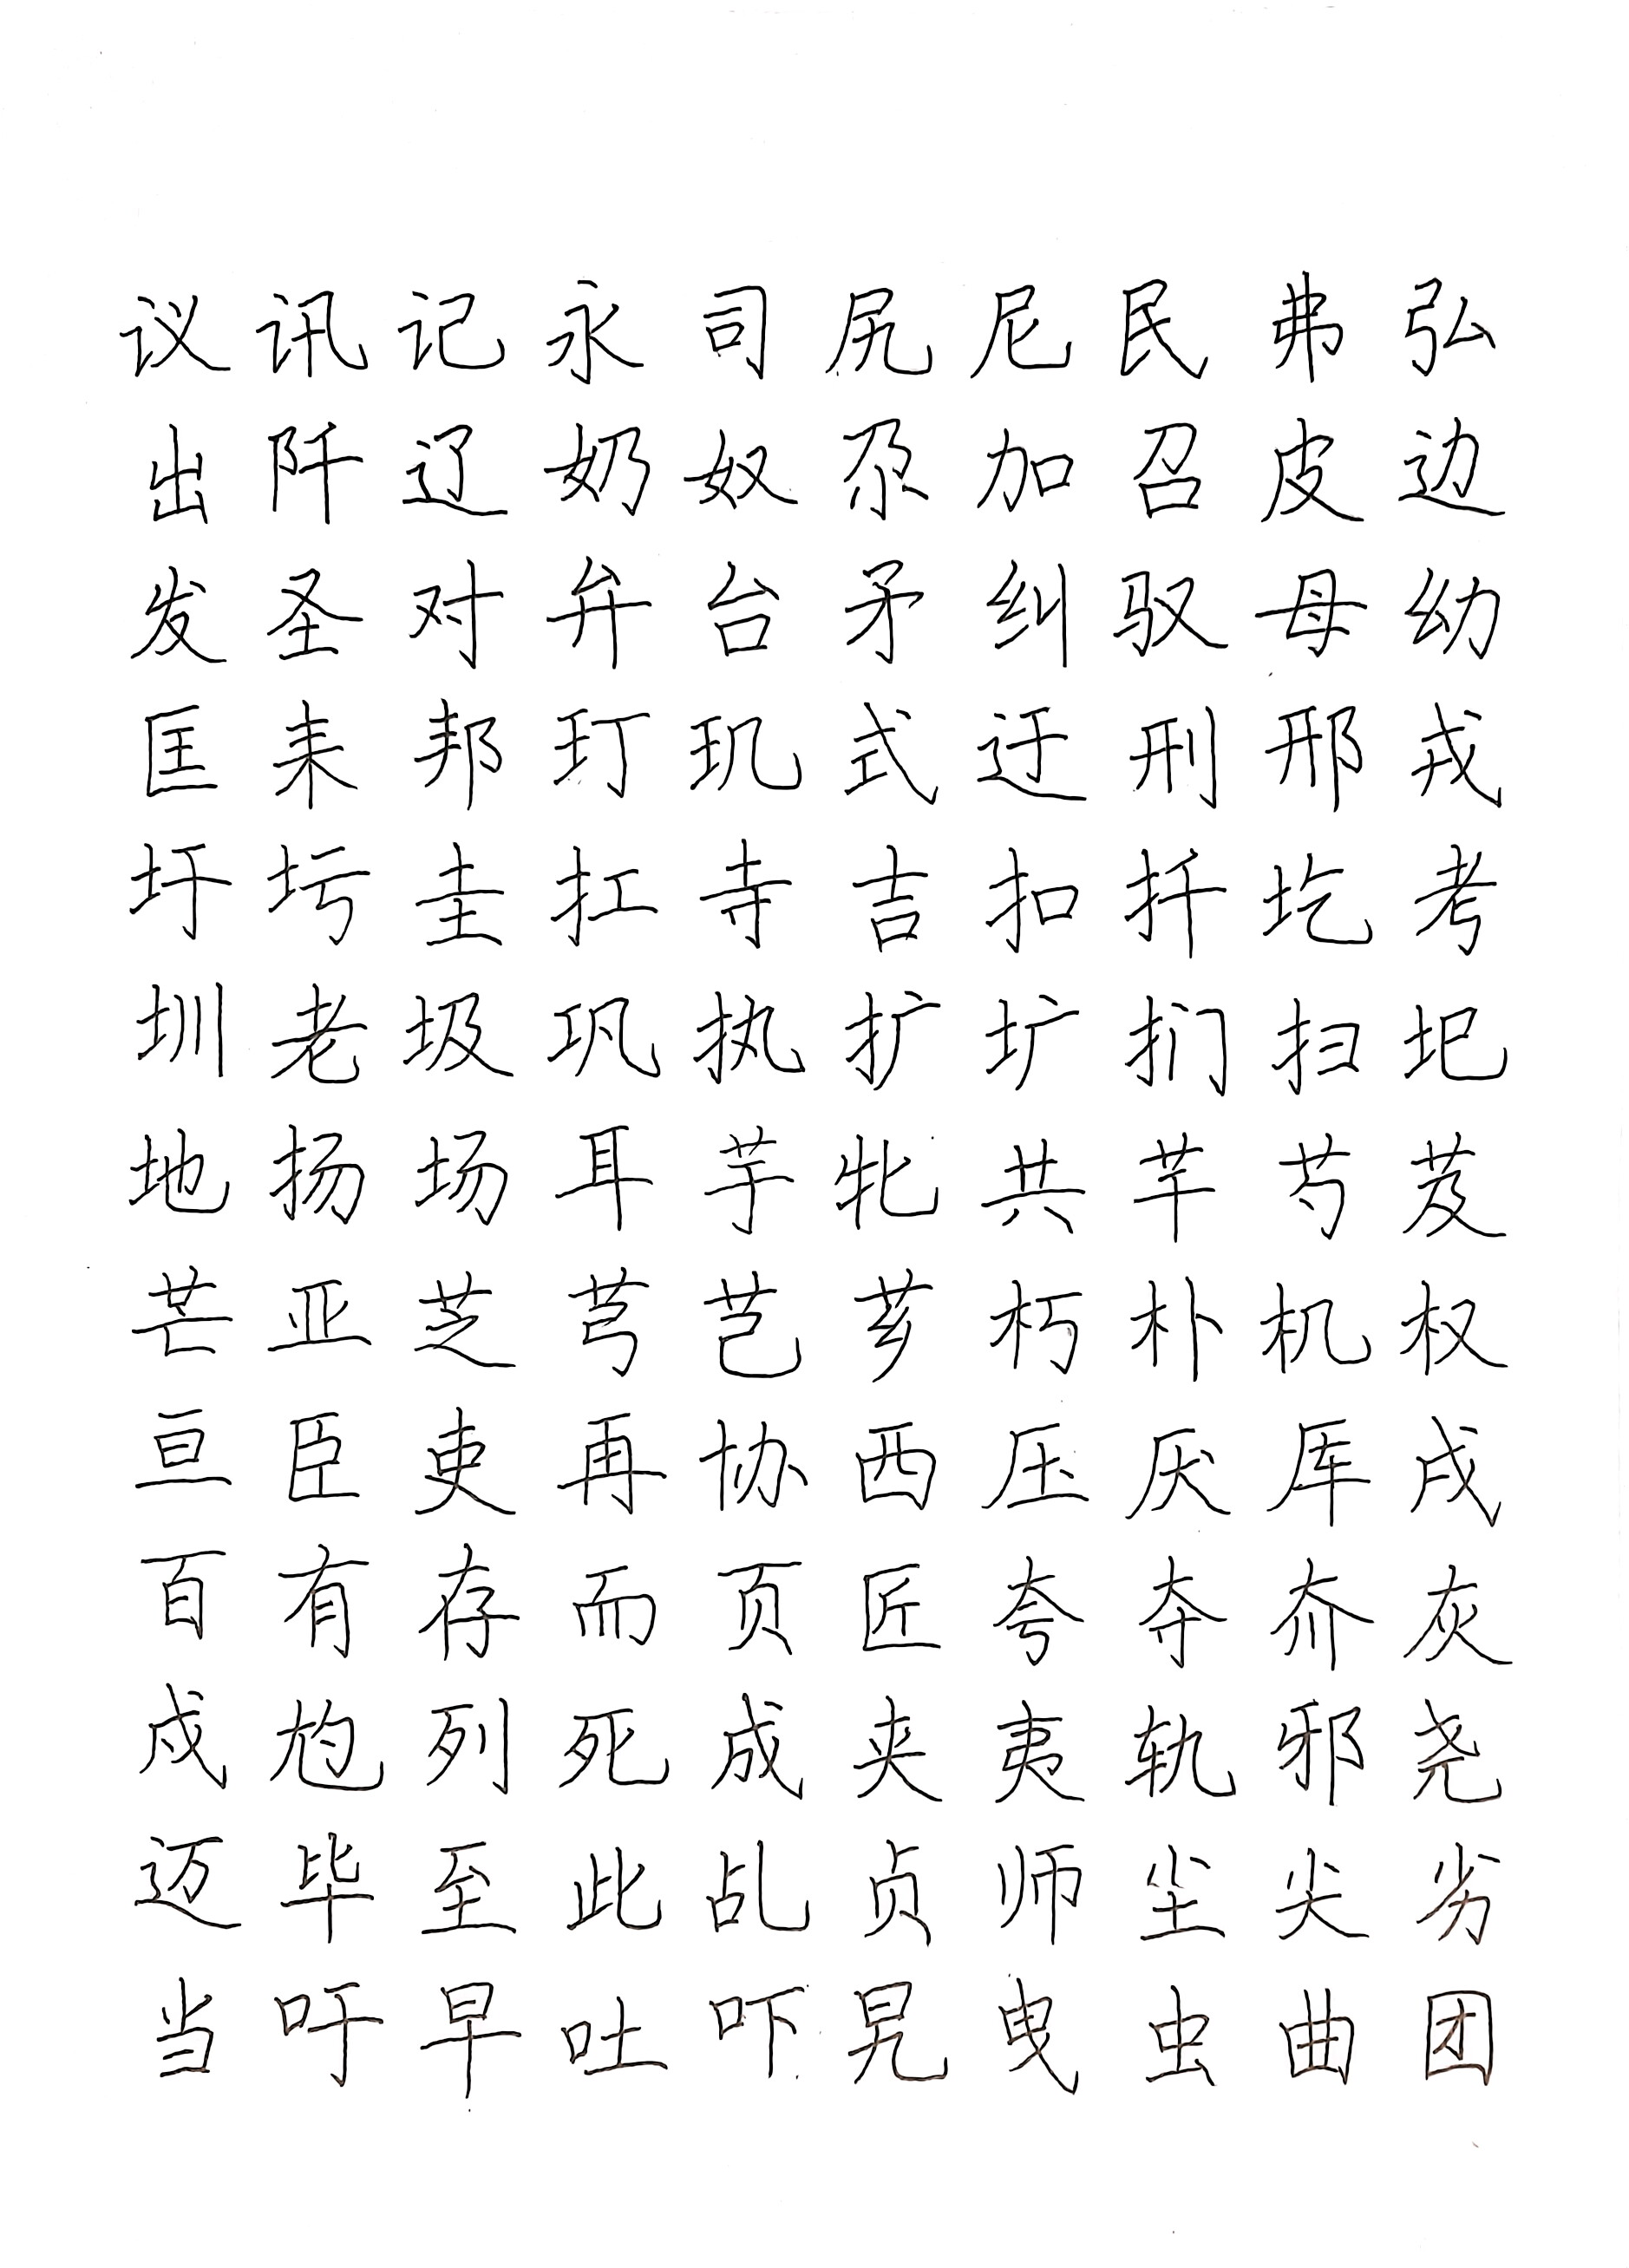 议讯记永司尻尼民弗弘
出阡辽奶奴尕加召皮边
发圣对弁台矛纠驭母幼
匡耒邦玎玑式迂刑邢戎
圩圬圭扛寺吉扣扦圪考
圳老圾巩执扩圹扪扫圯
地扬场耳芋牝共芊芍芨
芒亚芝芎芑芗朽朴机权
亘臣吏再协西压厌厍戌
百有存而页匠夸夺夼灰
戍尥列死成夹夷轨邪尧
迈毕至此乩贞师尘尖劣
当吁早吐吓旯曳虫曲团